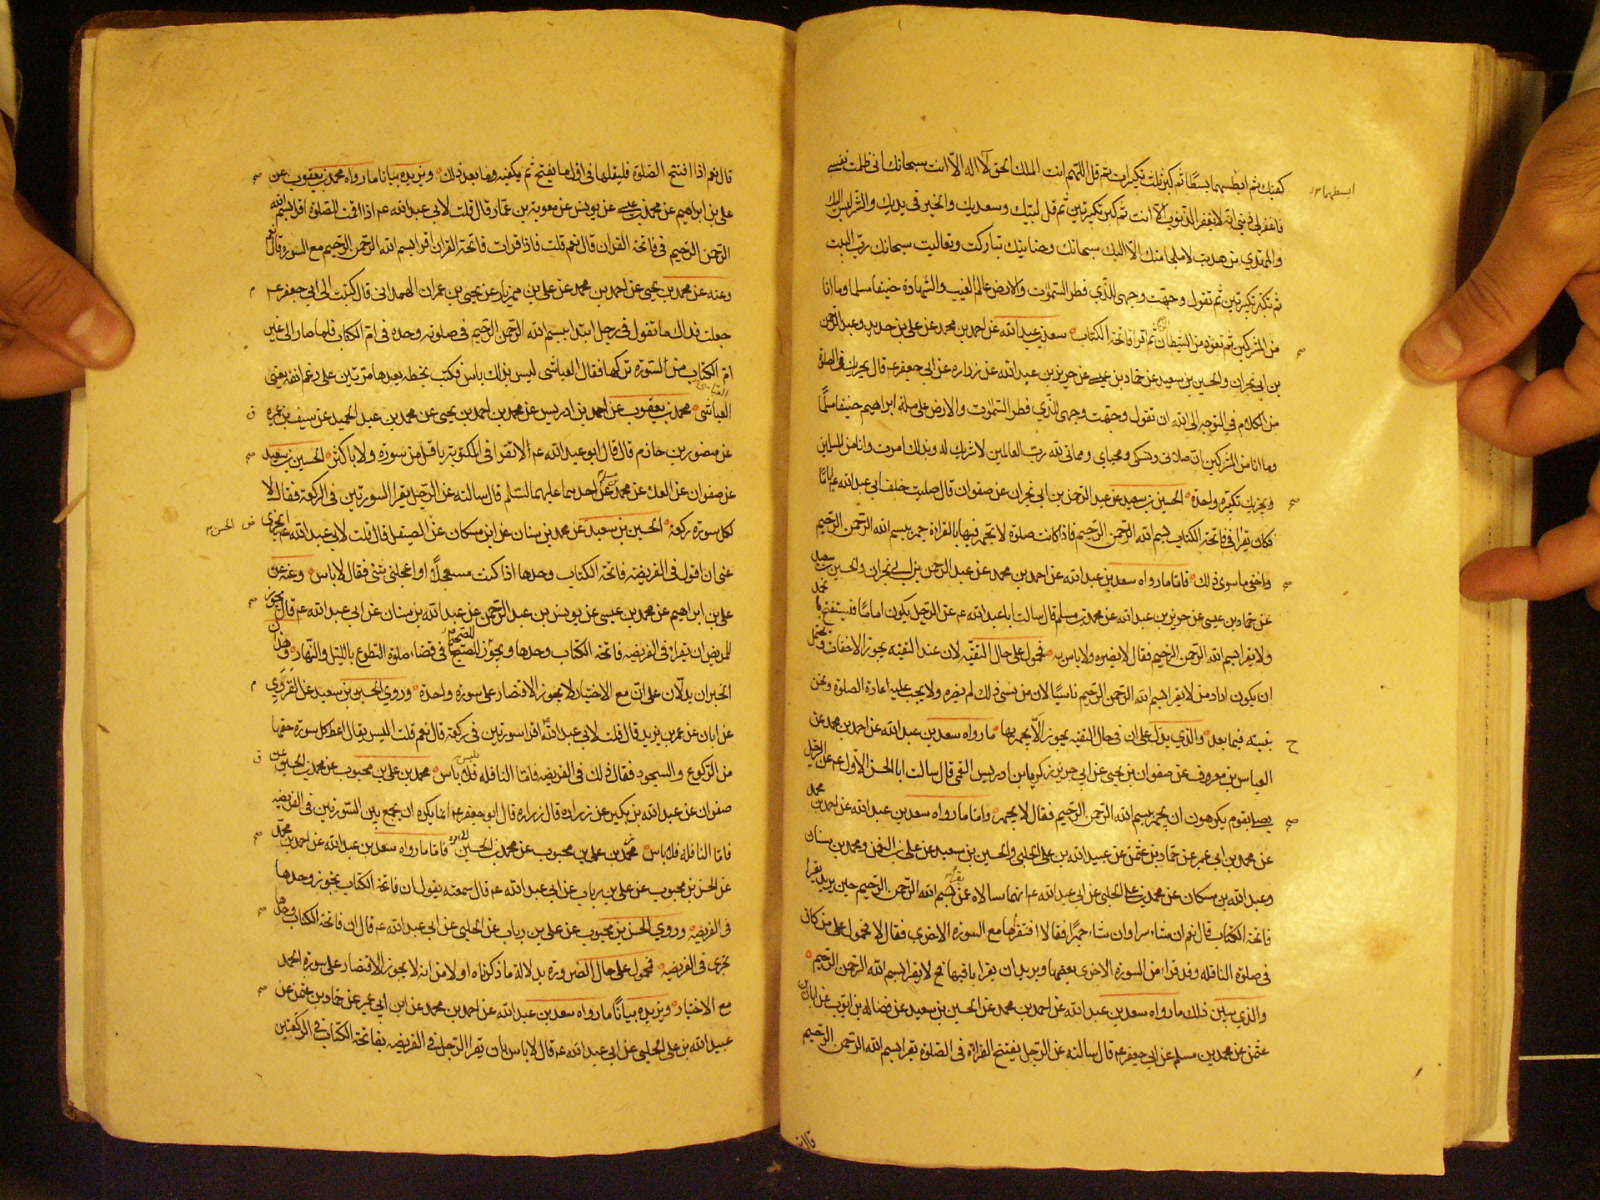 كفيك ثم ابسطهما بسطا ثم كبر ثلث تكبيرات ثم قل اللهم انت الملك الحق لا اله الا انت سبحانك انى ظلمت نفسى
فاغفر لى ذنبى انه لا يغفر الذنوب الا انت ثم كبر تكبيرتين ثم قل لبيك وسعديك والخير فى يديك والشر ليس اليك
والمهتدى من هديت لا ملجأ منك الا اليك سبحانك وحنانيك تباركت وتعاليت سبحانك رب البيت
ثم تكبر تكبيرتين ثم تقول وجهت وجهى للذى فطر السموات والارض عالم الغيب والشهادة حنيفا مسلما وما انا
من المشركين ثم تعوذ من الشيطان ثم اقرا فاتحة الكتاب سعد بن عبد الله عن احمد بن محمد عن على بن حديد وعبد الرحمن
بن ابى نجران والحسين بن سعيد عن حماد بن عيسى عن حريز بن عبد الله عن زرارة عن ابى جعفر ع قال يجزيك فى الصلوة
من الكلام فى التوجه الى الله ان تقول وجهت وجهى للذى فطر السموات والارض على ملة ابراهيم حنيفا مسلما
وما انا من المشركين ان صلاتى ونسكى ومحياى ومماتى لله رب العالمين لا شريك له وبذلك امرت وانا من المسلمين
ويجزيك تكبيرة واحدة الحسين بن سعيد عن عبد الرحمن بن ابى نجران عن صفوان قال صليت خلف ابى عبد الله ع اياما
فكان يقرا فى فاتحة الكتاب بسم الله الرحمن الرحيم فاذا كانت صلوة لا يجهر فيها بالقراءة جهر ببسم الله الرحمن الرحيم
واخفى ما سوى ذلك فاما ما رواه سعد بن عبد الله عن احمد بن محمد عن عبد الرحمن بن ابى نجران والحسين بن سعيد
عن حماد بن عيسى عن حريز بن عبد الله عن محمد بن مسلم قال سالت ابا عبد الله ع عن الرجل يكون اماما فيستفتح بالحمد
ولا يقرا بسم الله الرحمن الرحيم فقال لا يضره ولا باس به فمحمول على حال التقية لان عند التقية يجوز الاخفات ويحتمل
ان يكون اراد من لا يقرا بسم الله الرحمن الرحيم ناسيا لان من نسى ذلك لم يضره ولا يجب عليه اعادة الصلوة ونحن
نبينه فيما بعد والذى يدل على ان فى حال التقية يجوز الا يجهر بها ما رواه سعد بن عبد الله عن احمد بن محمد عن
العباس بن معروف عن صفوان بن يحيى عن ابى جرير زكريا بن ادريس القمى قال سالت ابا الحسن الاول ع عن الرجل
يصلى بقوم يكرهون ان يجهر ببسم الله الرحمن الرحيم فقال لا يجهر واما ما رواه سعد بن عبد الله عن احمد بن محمد
عن محمد بن ابى عمير عن حماد بن عثمن عن عبيد الله بن على الحلبى والحسين بن سعيد عن على بن النعمن ومحمد بن سنان
وعبد الله بن مسكان عن محمد بن على الحلبى عن ابى عبد الله ع انهما سالاه عمن يقرا بسم الله الرحمن الرحيم حين يريد يقرا
فاتحة الكتاب قال نعم ان شاء سرا وان شاء جهرا فقالا افنقرها مع السورة الاخرى فقال لا فمحمول على من كان
فى صلوة النافلة وقد قرا من السورة الاخرى بعضها ويريد ان يقرا باقيها فح لا يقرا بسم الله الرحمن الرحيم
والذى يبين ذلك ما رواه سعد بن عبد الله عن احمد بن محمد عن الحسين بن سعيد عن فضالة بن ايوب عن ابان بن
عثمن عن محمد بن مسلم عن ابى جعفر ع قال سالته عن الرجل يفتتح القراءة فى الصلوة يقرا بسم الله الرحمن الرحيم
قال نعم اذا افتتح الصلوة فليقلها فى اول ما يفتتح ثم يكفيه وما بعد ذلك ويزيده بيانا ما رواه محمد بن يعقوب عن
على بن ابراهيم عن محمد بن عيسى عن يونس عن معوية بن عمار قال قلت لابى عبد الله ع اذا اقمت الصلوة اقرا بسم الله
الرحمن الرحيم فى فاتحة القران قال نعم قلت فاذا قرات فاتحة القران اقرا بسم الله الرحمن الرحيم مع السورة قال نعم
وعنه عن محمد بن يحيى عن احمد بن محمد عن على بن مهزيار عن يحيى بن عمران الهمدانى قال كتبت الى ابى جعفر ع
جعلت فداك ما تقول فى رجل ابتدا ببسم الله الرحمن الرحيم فى صلوته وحده فى ام الكتاب فلما صار الى غير
ام الكتاب من السورة تركها فقال العباسى ليس بذلك باس فكتب بخطه يعيدها مرتين على رغم انفه يعنى
العباسى محمد بن يعقوب عن احمد بن ادريس عن محمد بن احمد بن يحيى عن محمد بن عبد الحميد عن سيف بن عميرة
عن منصور بن حازم قال قال ابو عبد الله ع لا تقرا فى المكتوبة باقل من سورة ولا باكثر الحسين بن سعيد
عن صفوان عن العلاء عن محمد عن احدهما عليهما السلم قال سالته عن الرجل يقرا السورتين فى الركعة فقال لا
لكل سورة ركعة الحسين بن سعيد عن محمد بن سنان عن ابن مسكان عن الصيقل قال قلت لابى عبد الله ع ايجزى
عنى ان اقول فى الفريضة فاتحة الكتاب وحدها اذا كنت مستعجلا او اعجلنى شئ فقال لا باس وعنه عن
على بن ابراهيم عن محمد بن عيسى عن يونس بن عبد الرحمن عن عبد الله بن سنان عن ابى عبد الله ع قال يجوز
للمريض ان يقرا فى الفريضة فاتحة الكتاب وحدها ويجوز للصحيح فى قضاء صلوة التطوع بالليل والنهار وهذان
الخبران يدلان على ان مع الاختيار لا يجوز الاقتصار على سورة واحدة وروى الحسين بن سعيد عن القروى
عن ابان عن عمر بن يزيد قال قلت لابى عبد الله اقرا سورتين فى ركعة قال نعم قلت اليس يقال اعط كل سورة حقها
من الركوع والسجود فقال ذلك فى الفريضة فاما النافلة فلا باس محمد بن على بن محبوب عن محمد بن الحسين عن
صفوان عن عبد الله بن بكير عن زرارة قال زرارة قال ابو جعفر ع انما يكره ان يجمع بين السورتين فى الفريضة
فاما النافلة فلا باس محمد بن على بن محبوب عن محمد بن الحسين فاما ما رواه سعد بن عبد الله عن احمد بن محمد
عن الحسن بن محبوب عن على بن رياب عن ابى عبد الله ع قال سمعته يقول ان فاتحة الكتاب يجوز وحدها
فى الفريضة وروى الحسن بن محبوب عن على بن رياب عن الحلبى عن ابى عبد الله ع قال ان فاتحة الكتاب وحدها
تجزى فى الفريضة فمحمول على حال الضرورة بدلالة ما ذكرناه اولا من انه لا يجوز الاقتصار على سورة الحمد
مع الاختيار ويزيده بيانا ما رواه سعد بن عبد الله عن احمد بن محمد عن ابن ابى عمير عن حماد بن عثمن عن
عبيد الله بن على الحلبى عن ابى عبد الله ع قال لا باس بان يقرا الرجل فى الفريضة بفاتحة الكتاب فى الركعتين